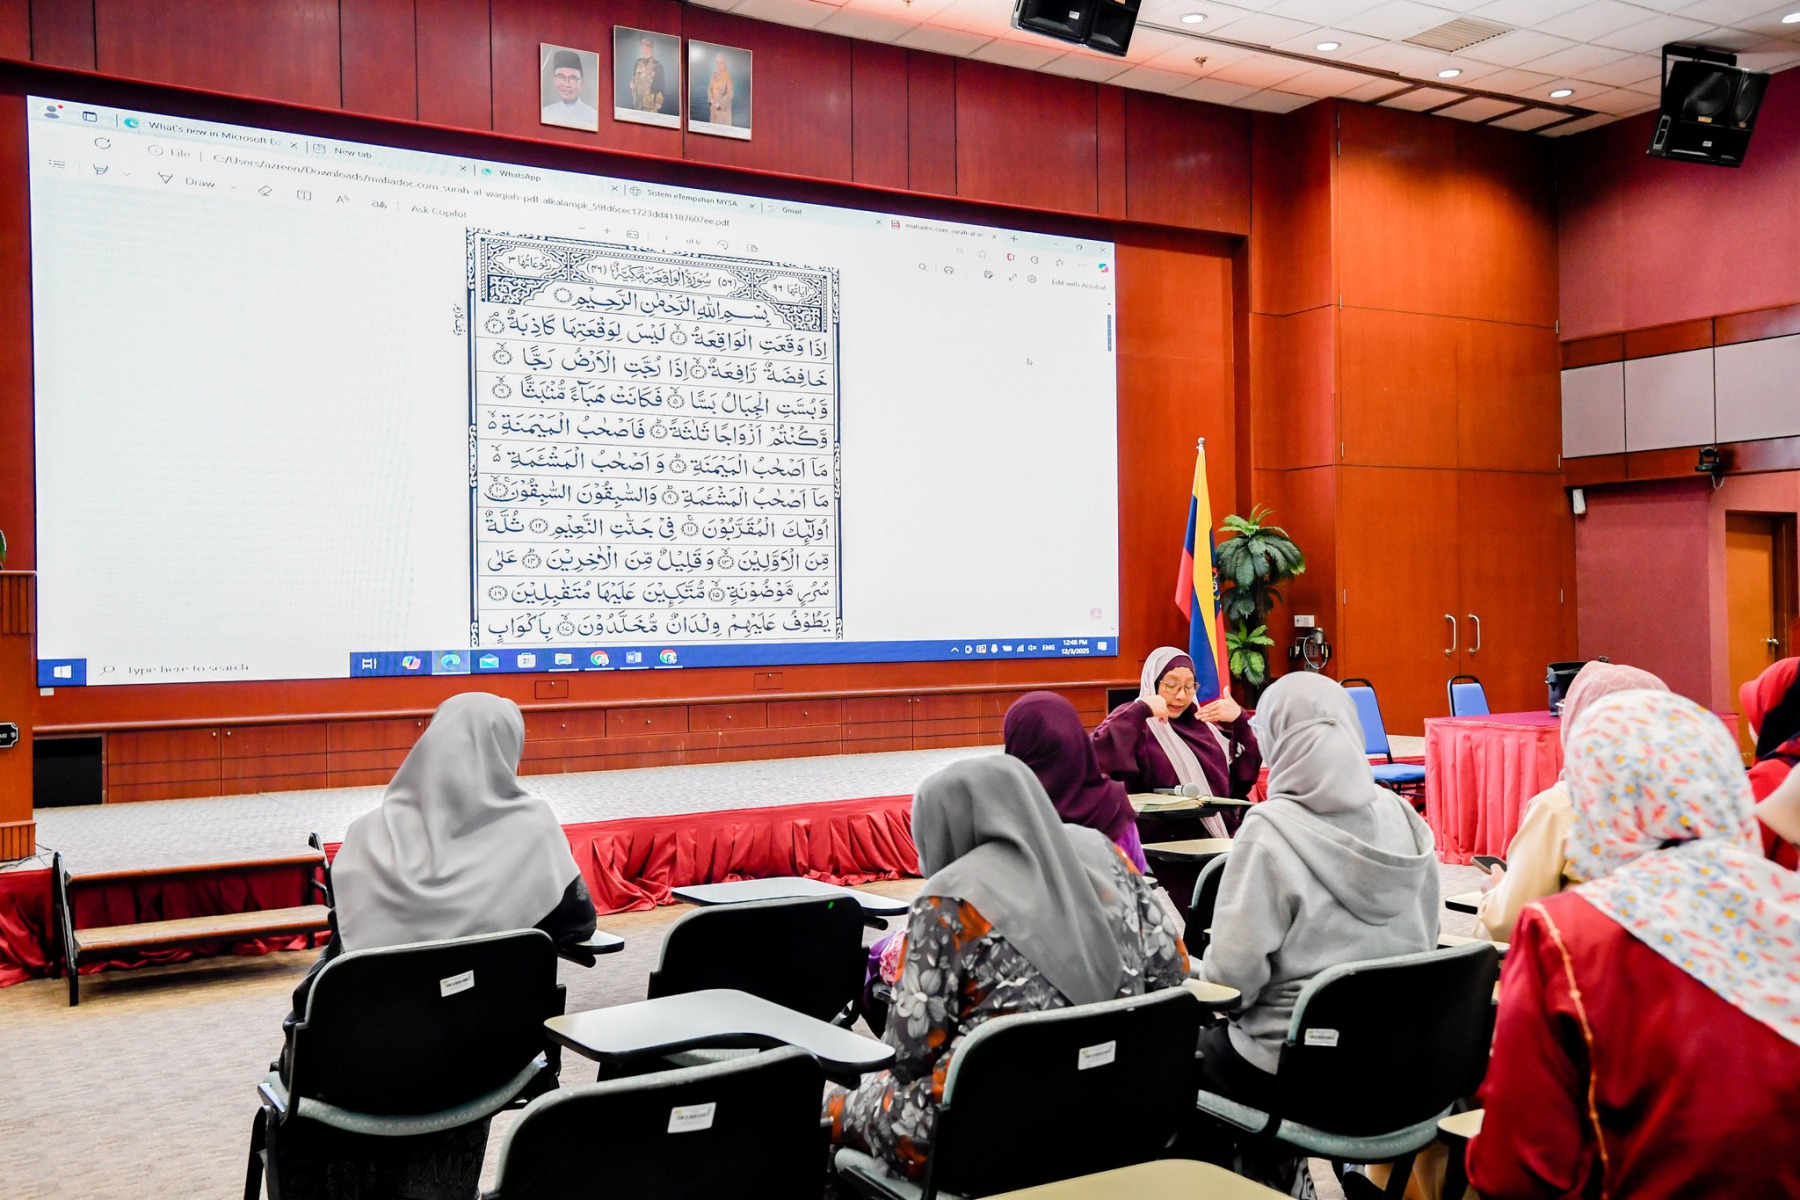 What's new in Microsoft Ed
New tab
WhatsApp
Sistem eTempahan MYSA
Gmail
mafiadoc.com_surah-al-w
File | C:/Users/azreen/Downloads/mafiadoc.com_surah-al-waqiah-pdf-alkalampk_59fd6cec1723dd41187607ee.pdf
Draw
Ask Copilot
1 of 6
Edit with Acrobat
اٰيَاتُهَا ٩٦ (٥٦) سُوْرَةُ الْوَاقِعَةِ مَكِّيَّةٌ (٤٦) رُكُوْعَاتُهَا ٣
بِسْمِ اللّٰهِ الرَّحْمٰنِ الرَّحِيْمِ
اِذَا وَقَعَتِ الْوَاقِعَةُ ۙ﴿١﴾ لَيْسَ لِوَقْعَتِهَا كَاذِبَةٌ ۘ﴿٢﴾
خَافِضَةٌ رَّافِعَةٌ ۙ﴿٣﴾ اِذَا رُجَّتِ الْاَرْضُ رَجًّا ۙ﴿٤﴾
وَّبُسَّتِ الْجِبَالُ بَسًّا ۙ﴿٥﴾ فَكَانَتْ هَبَآءً مُّنْۢبَثًّا ۙ﴿٦﴾
وَّكُنْتُمْ اَزْوَاجًا ثَلٰثَةً ؕ﴿٧﴾ فَاَصْحٰبُ الْمَيْمَنَةِ ۙ۬
مَاۤ اَصْحٰبُ الْمَيْمَنَةِ ؕ﴿٨﴾ وَ اَصْحٰبُ الْمَشْـَٔمَةِ ۙ۬
مَاۤ اَصْحٰبُ الْمَشْـَٔمَةِ ؕ﴿٩﴾ وَالسّٰبِقُوْنَ السّٰبِقُوْنَ ۚۙ﴿١٠﴾
اُولٰٓئِكَ الْمُقَرَّبُوْنَ ۚ﴿١١﴾ فِيْ جَنّٰتِ النَّعِيْمِ ﴿١٢﴾ ثُلَّةٌ
مِّنَ الْاَوَّلِيْنَ ۙ﴿١٣﴾ وَ قَلِيْلٌ مِّنَ الْاٰخِرِيْنَ ؕ﴿١٤﴾ عَلٰى
سُرُرٍ مَّوْضُوْنَةٍ ۙ﴿١٥﴾ مُّتَّكِـِٕيْنَ عَلَيْهَا مُتَقٰبِلِيْنَ ﴿١٦﴾
يَطُوْفُ عَلَيْهِمْ وِلْدَانٌ مُّخَلَّدُوْنَ ۙ﴿١٧﴾ بِاَكْوَابٍ
Type here to search
ENG
12:48 PM
12/3/2025